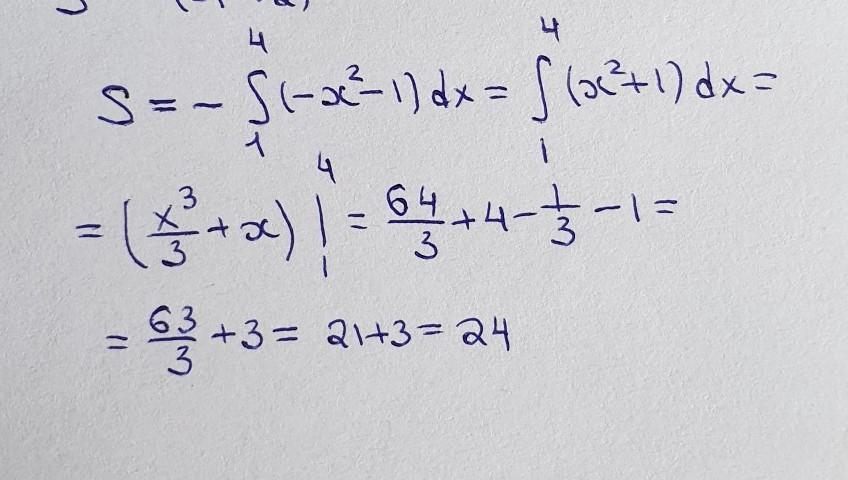 S = - ∫₁⁴ (-x² - 1) dx = ∫₁⁴ (x² + 1) dx =
= (x³/3 + x) |₁⁴ = 64/3 + 4 - 1/3 - 1 =
= 63/3 + 3 = 21 + 3 = 24